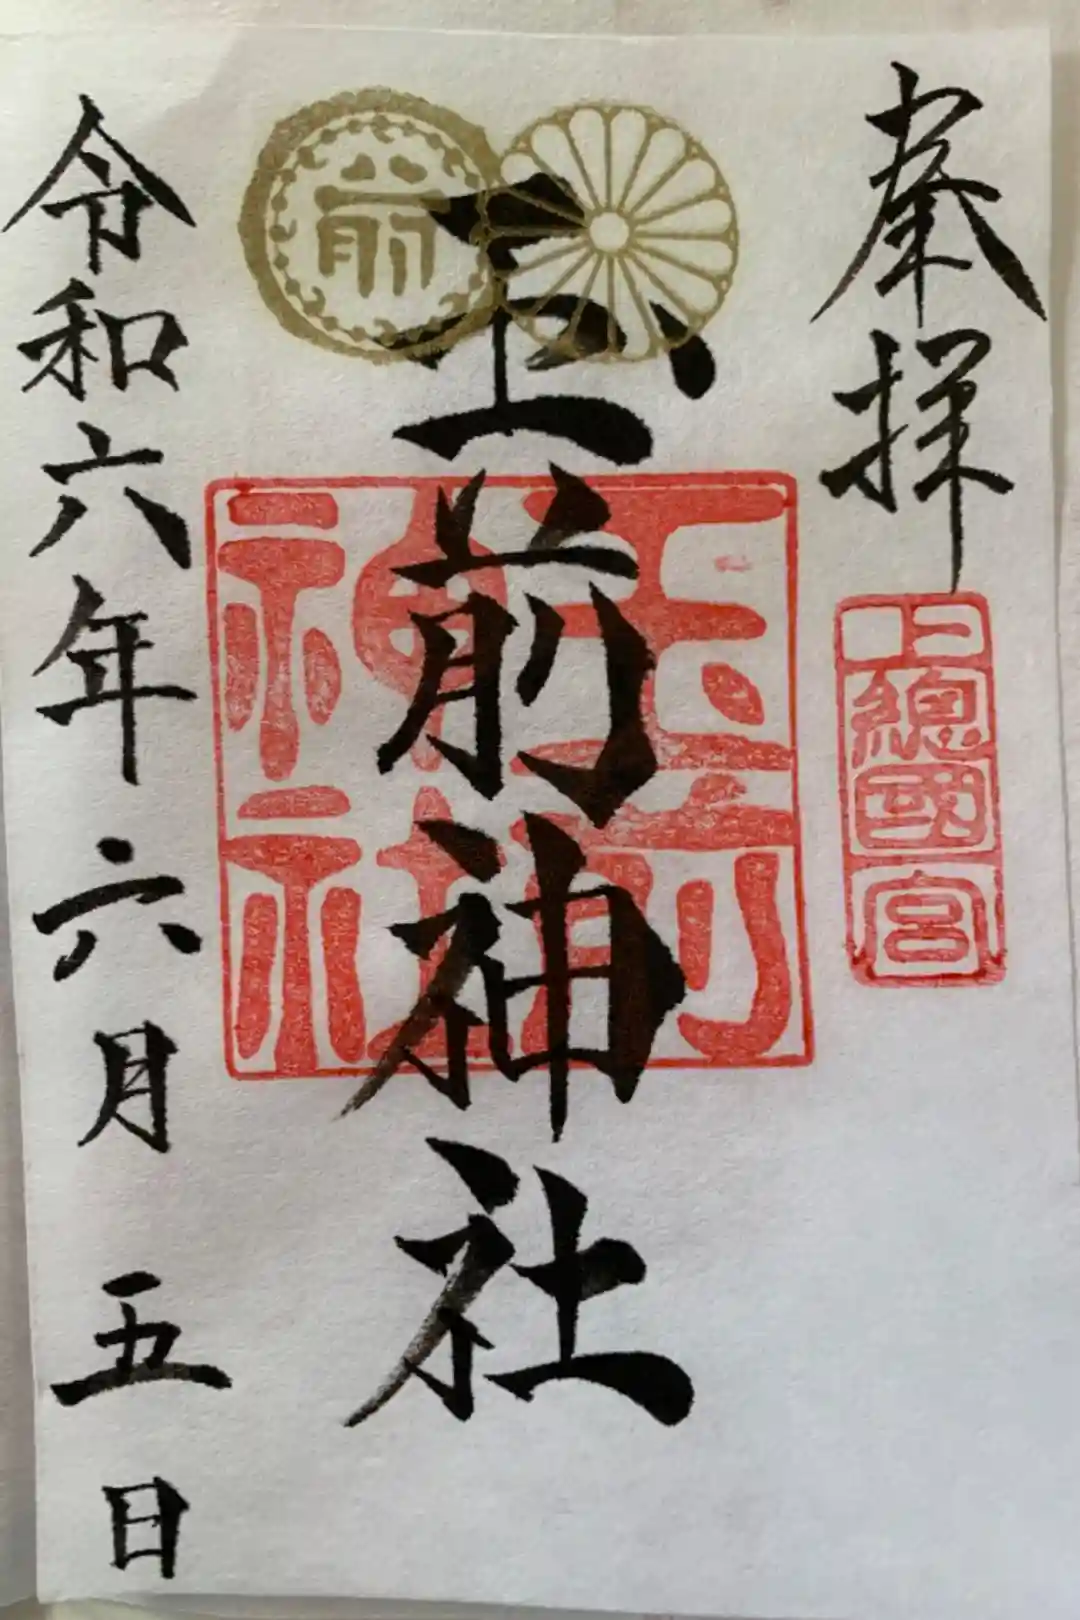 奉拝
上總國一宮
前
玉前神社
玉前神社
令和六年六月五日